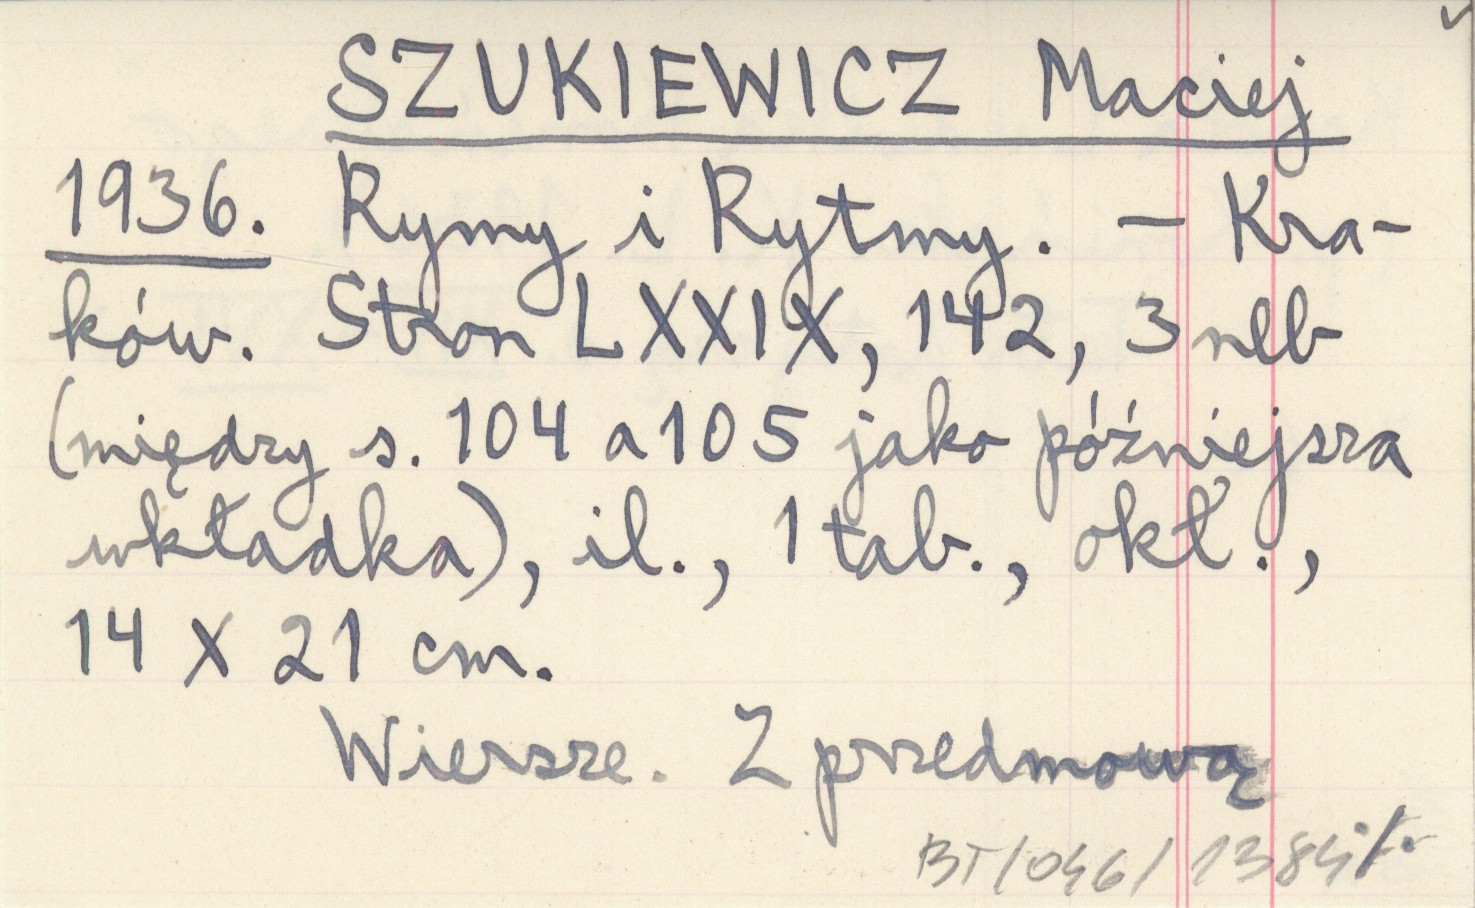 SZUKIEWICZ Maciej
1936. Rymy i Rytmy. - Kra-
ków. Stron LXXIX, 142, 3 nlb
(między s. 104 a 105 jako późniejsza
wkładka), il., 1 tab., okł.,
14 X 21 cm.
Wiersze. Z przedmową
BT/046/